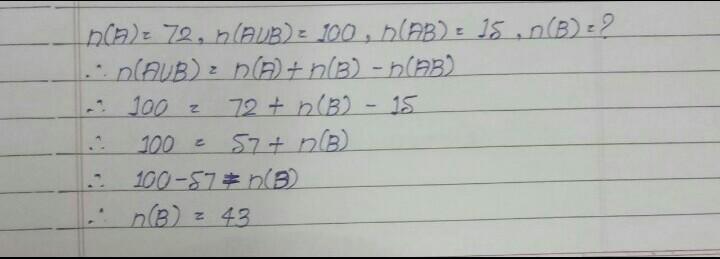 n(A) = 72, n(A∪B) = 100, n(AB) = 15, n(B) = ?
∴ n(A∪B) = n(A) + n(B) - n(AB)
∴ 100 = 72 + n(B) - 15
∴ 100 = 57 + n(B)
∴ 100 - 57 = n(B)
∴ n(B) = 43